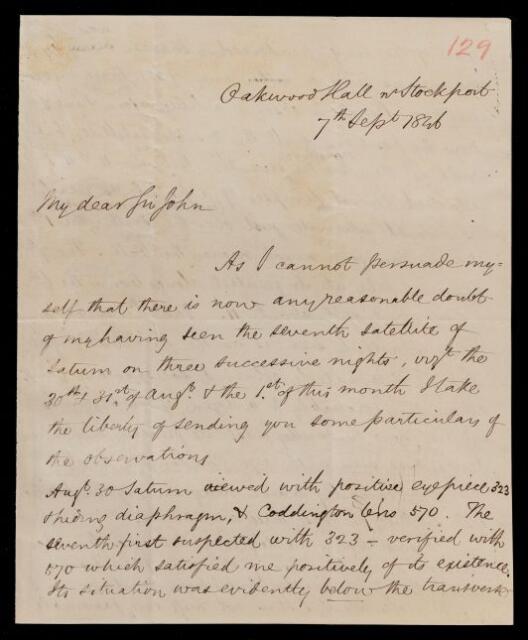 129
Oakwood Hall nr Stockport
7th Sept 1846
My dear Sir John
As I cannot persuade my=
self that there is now any reasonable doubt
of my having seen the seventh satellite of
Saturn on three successive nights, vizt the
30th & 31.st of Augt. & the 1.st of this month I take
the liberty of sending you some particulars of
the observations
Augt. 30 Saturn viewed with positive eyepiece 323
diaphragm, & Coddington lens 570. The
seventh first suspected with 323 – verified with
570 which satisfied me positively of its existence.
Its situation was evidently below the transverse